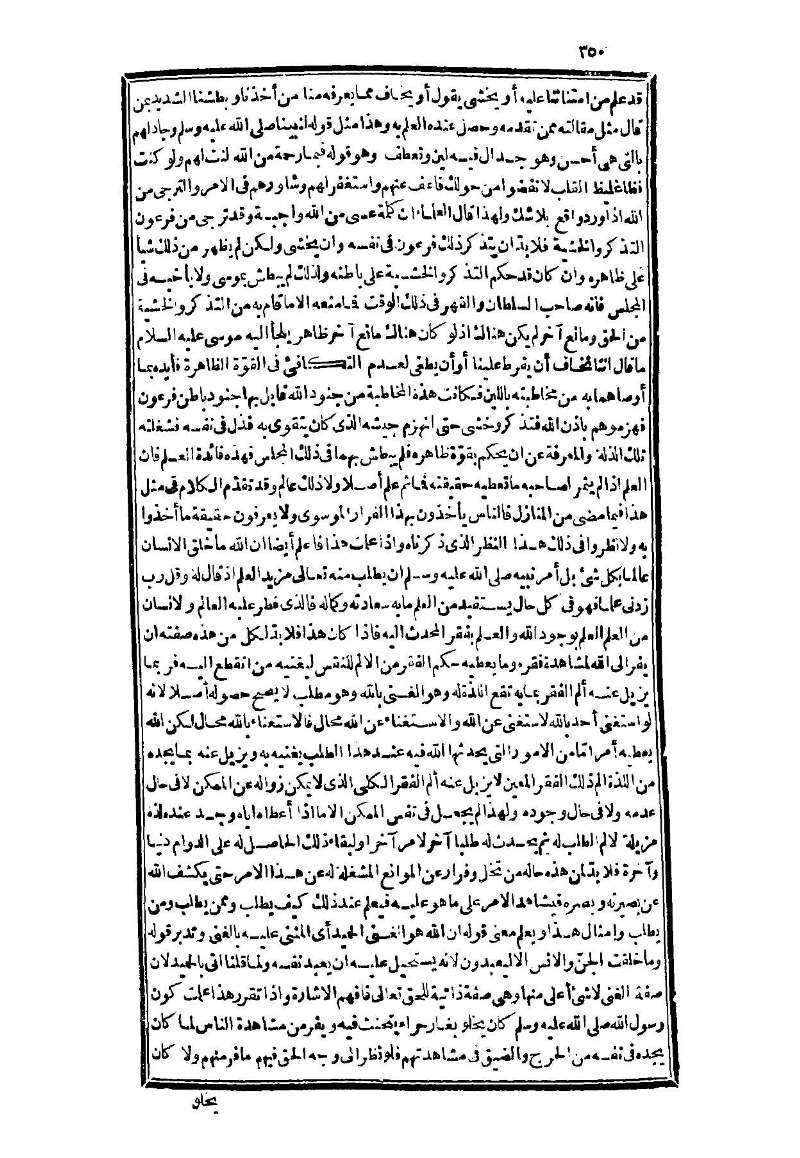 ٣٥٠
قد علم من امتناننا عليه أو يخشى يقول أو يخاف مما يعرفه منا من أخذنا وبطشنا الشديد بمن
قال مثل مقالته ممن تقدمه وحصل عنده العلم به وهذا مثل قوله لنبينا صلى الله عليه وسلم وجادلهم
بالتى هى أحسن وهو جدال فيه لين وتعطف وهو قوله فبما رحمة من الله لنت لهم ولو كنت
فظا غليظ القلب لانفضوا من حولك فاعف عنهم واستغفر لهم وشاورهم فى الامر والترجى من
الله اذا ورد واقع بلاشك ولهذا قال العلماء ان كلمة عسى من الله واجبة وقد ترجى من فرعون
التذكر والخشية فلابد ان يتذكر ذلك فرعون فى نفسه وان يخشى ولكن لم يظهر من ذلك شيأ
على ظاهره وان كان قد حكم التذكر والخشية على باطنه ولذلك لم يبطش بموسى ولا بأخيه فى
المجلس فانه صاحب السلطان والقهر فى ذلك الوقت فما منعه الا ما قام به من التذكر والخشية
من الحق ومانع آخر لم يكن هنالك اذ لو كان هناك مانع آخر ظاهر يلجأ اليه موسى عليه السلام
ما قال اننا نخاف أن يفرط علينا أو أن يطغى لعدم التكافئ فى القوة الظاهرة فأيده بما
أوصاهما به من مخاطبته باللين فكانت هذه المخاطبة من جنود الله قابل بها جنود باطن فرعون
فهزموهم باذن الله فتذكر وخشى حتى انهزم جيشه الذى كان يتقوى به فذل فى نفسه فشغلته
تلك الذلة والمعرفة عن ان يحكم بقوة ظاهره فلم يبطش بهما فى ذلك المجلس فهذه فائدة العلم فان
العلم اذا لم يثمر لصاحبه ما تعطيه حقيقته فما ثم علم أصلا ولا ذلك عالم وقد تقدم الكلام فى مثل
هذا فيما مضى من المنازل فالناس يأخذون بهذا الفرار الموسوى ولا يعرفون حقيقة ما أخذوا
به ولا نظروا فى ذلك هذا النظر الذى ذكرناه واذا علمت هذا فاعلم أيضا ان الله ما خلق الانسان
عالما بكل شئ بل أمر نبيه صلى الله عليه وسلم ان يطلب منه تعالى مزيد العلم اذ قال له وقل رب
زدنى علما فهو فى كل حال يستفيد من العلم ما به سعادته وكماله فالذى فطر عليه العالم والانسان
من العلم العلم بوجود الله والعلم بفقر المحدث اليه فاذا كان هذا فلابد لكل من هذه صفته ان
يفر الى الله لمشاهدة فقره وما يعطيه حكم الفقر من الالم للنفس ليغنيه من انقطع اليه فربما
يزيل عنه ألم الفقر بما به تقع اللذة له وهو الغنى بالله وهو مطلب لا يصح حصوله أصلا لانه
لو استغنى أحد بالله لاستغنى عن الله والاستغناء عن الله محال فالاستغناء بالله محال لكن الله
يعطيه أمرا ما من الامور التى يحدثها الله فيه عند هذا الطلب يغنيه به ويزيل عنه بما يجده
من اللذة الم ذلك الفقر المعين لا يزيل عنه ألم الفقر الكلى الذى لا يمكن زواله عن الممكن لا فى حال
عدمه ولا فى حال وجوده ولهذا لم يجعل فى نفس الممكن الا ما اذا أعطاه اياه وجد عنده لذة
مزيلة لالم الطلب له ثم يحدث له طلبا آخر لامر آخر او لبقاء ذلك الحاصل له على الدوام دنيا
وآخرة فلابد لمن هذه حاله من تخل وفرار عن الموانع المشغلة له عن هذا الامر حتى يكشف الله
عن بصيرته وبصره فيشاهد الامر على ما هو عليه فيعلم عند ذلك كيف يطلب وممن يطلب ومن
يطلب وامثال هذا ويعلم معنى قوله ان الله هو الغنى الحميد أى المثنى عليه بالغنى وتدبر قوله
وما خلقت الجن والانس الا ليعبدون لانه يستحيل عليه ان يعبد نفسه ولما قلنا اتى بالحميد لان
صفة الغنى لا شئ أعلى منها وهى صفة ذاتية للحق تعالى فافهم الاشارة واذا تقرر هذا علمت كون
رسول الله صلى الله عليه وسلم كان يخلو بغار حراء يتحنث فيه ويفر من مشاهدة الناس لما كان
يجده فى نفسه من الحرج والضيق فى مشاهدتهم فلو نظر الى وجه الحق فيهم ما فر منهم ولا كان
يخلو